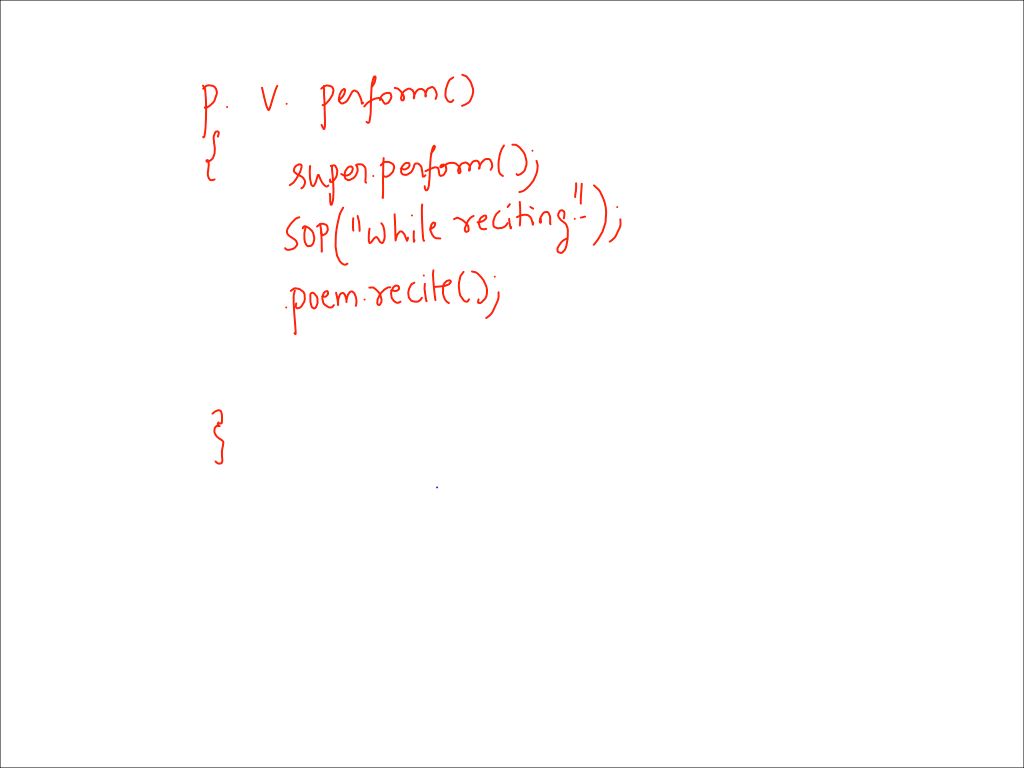 p. v. perform()
{
super.perform();
SOP("while reciting..");
poem.recite();
}